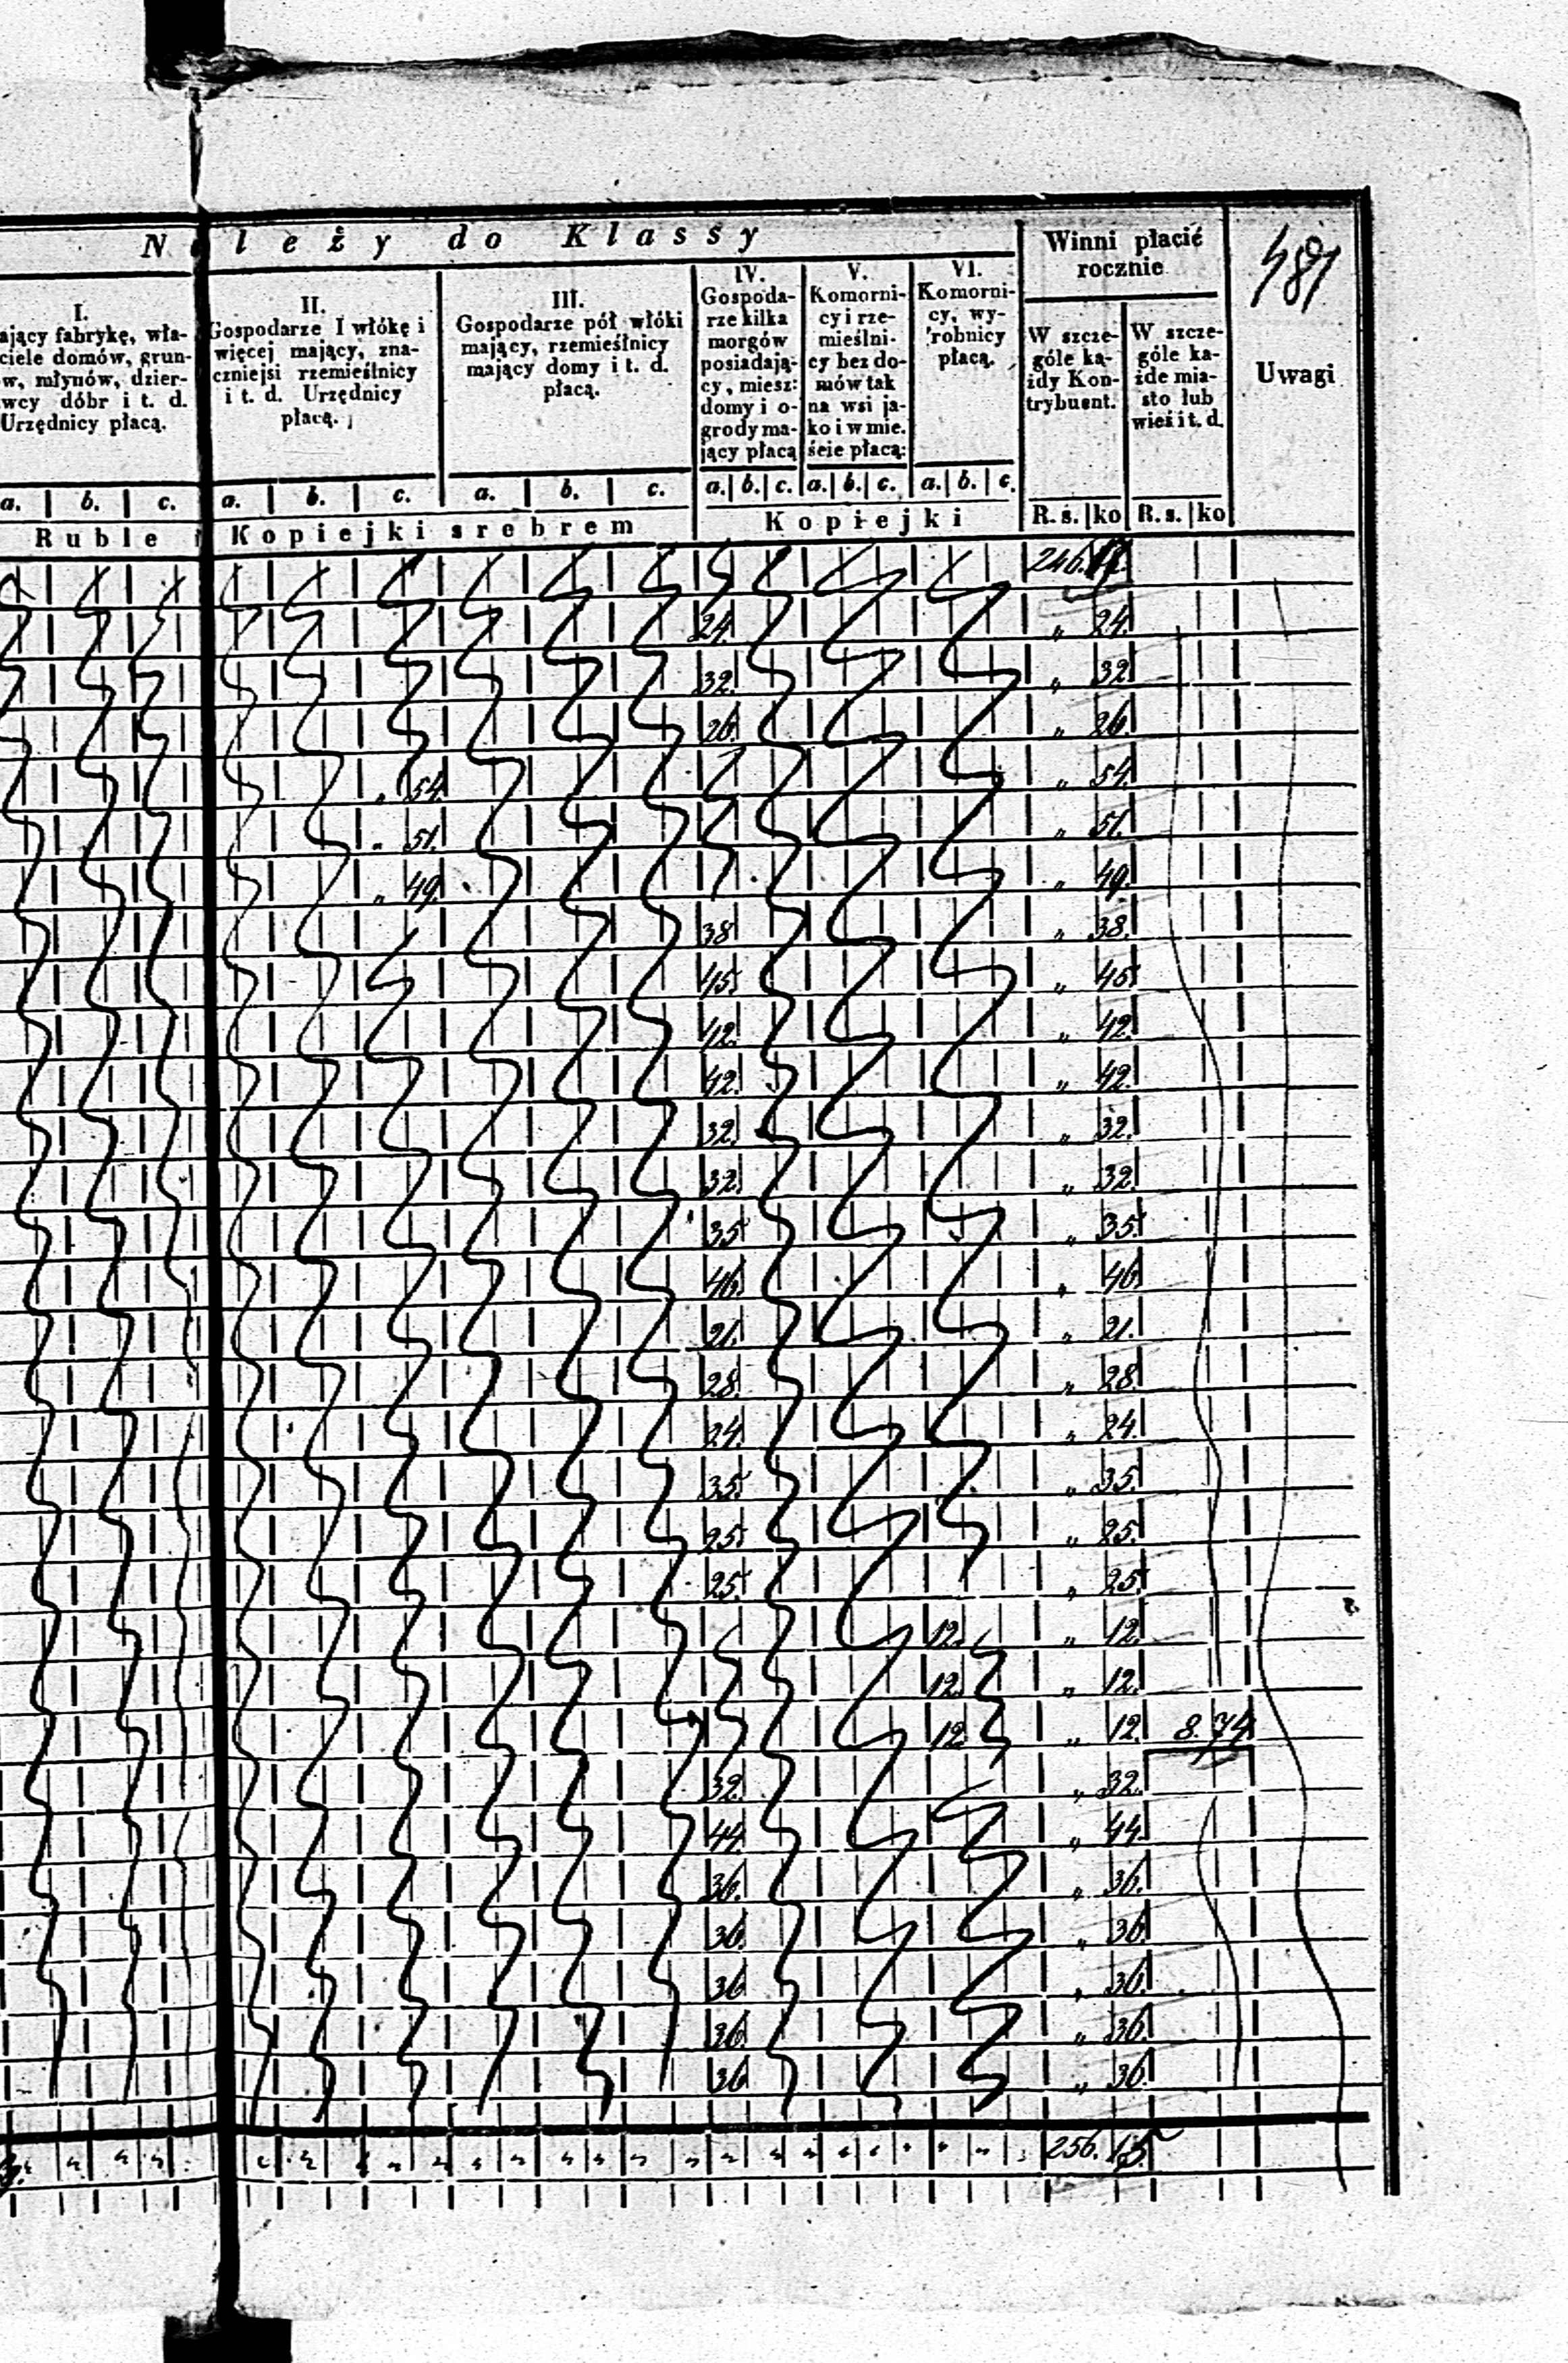 Należy do Klassy
Winni płacić
rocznie
481
I.
ający fabrykę, wła-
ciele domów, grun-
w, młynów, dzier-
wcy dóbr i t. d.
Urzędnicy płacą.
II.
Gospodarze I włókę i
więcej mający, zna-
czniejsi rzemieślnicy
i t. d. Urzędnicy
płacą.
III.
Gospodarze pół włóki
mający, rzemieślnicy
mający domy i t. d.
płacą.
IV.
Gospoda-
rze kilka
morgów
posiadają-
cy, miesz:
domy i o-
grody ma-
jący płacą
V.
Komorni-
cy i rze-
mieślni-
cy bez do-
mów tak
na wsi ja-
ko i w mie.
ście płacą:
VI.
Komorni-
cy, wy-
robnicy
płacą.
W szcze-
góle ka-
żdy Kon-
trybuent.
W szcze-
góle ka-
żde mia-
sto lub
wieś i t. d.
Uwagi
a. b. c. a. b. c. a. b. c. a. b. c. a. b. c. a. b. c.
Ruble i Kopiejki srebrem Kopiejki R. s. ko R. s. ko
246.
24. „ 24.
32. „ 32.
26. „ 26.
„ 54. „ 54.
„ 51. „ 51.
„ 49. „ 49.
38 „ 38.
45 „ 45
42. „ 42.
42. „ 42.
32. „ 32.
32. „ 32.
35 „ 35
46. „ 46.
21. „ 21.
28. „ 28.
24. „ 24.
35. „ 35.
25. „ 25.
25. „ 25.
12. „ 12.
12. „ 12.
12 „ 12. 8. 74
32. „ 32.
44. „ 44.
36. „ 36.
36. „ 36.
36 „ 36.
36. „ 36.
36 „ 36.
256. 15